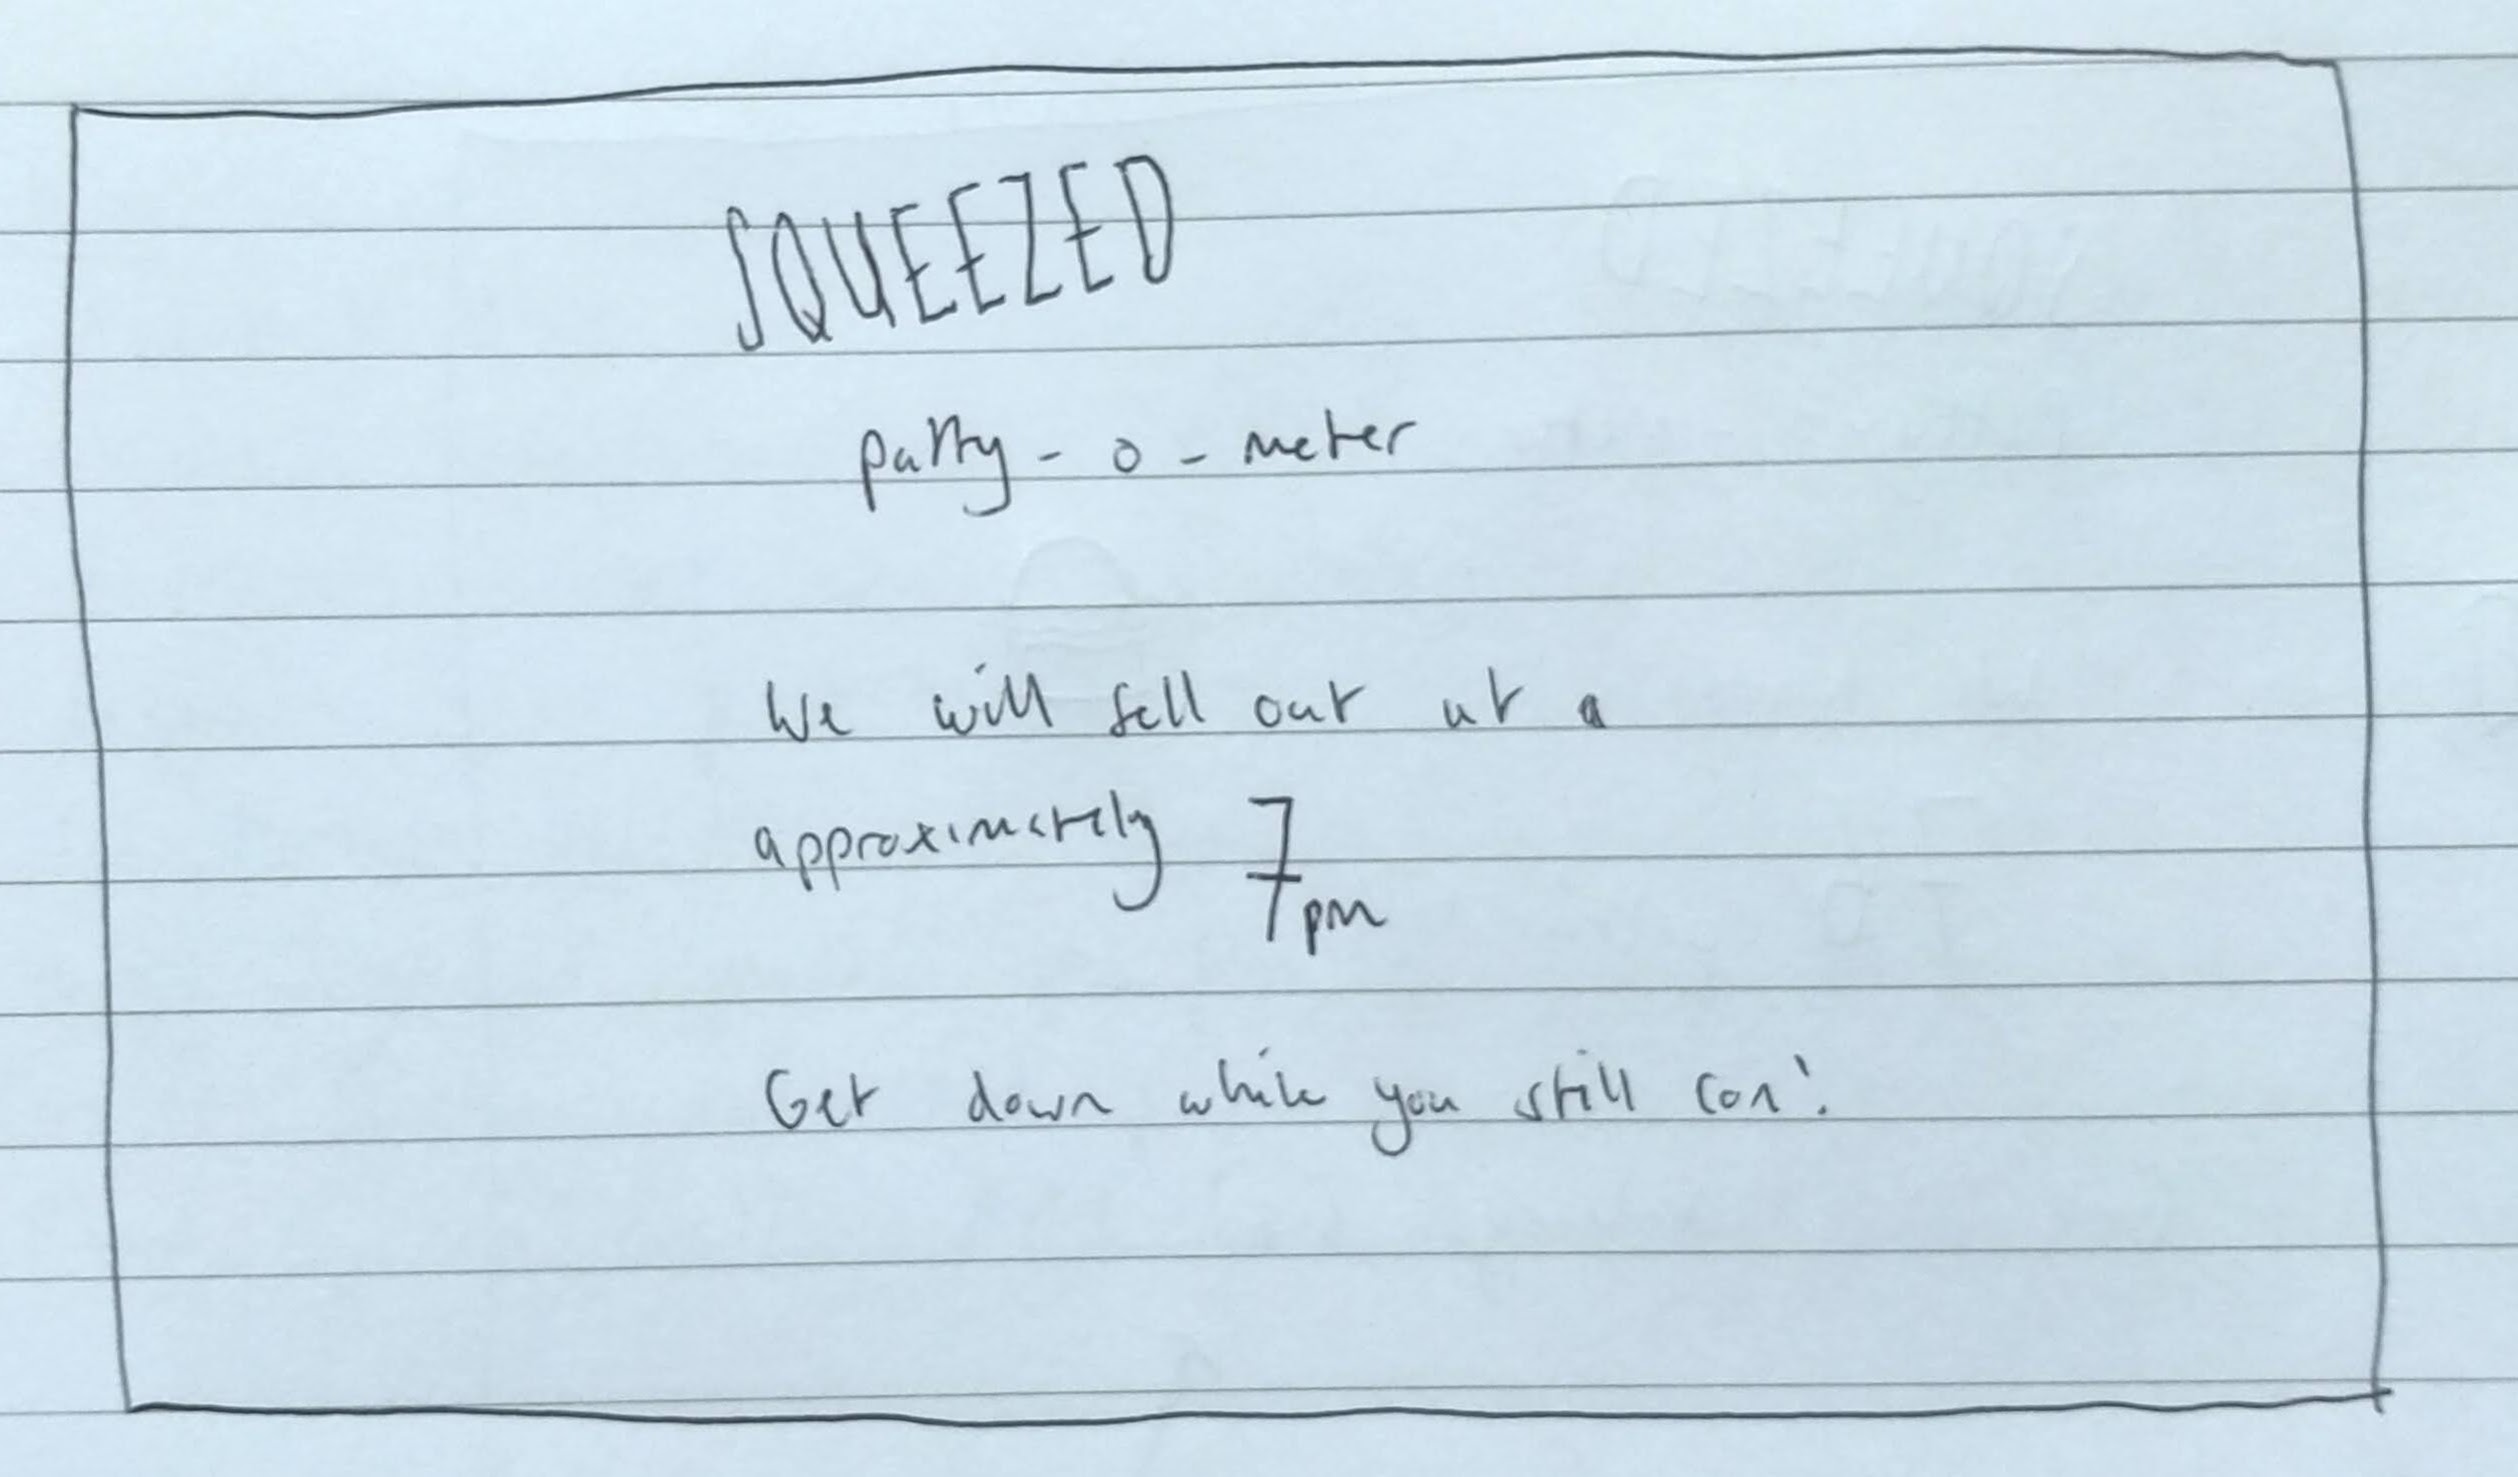 SQUEEZED
patty-o-meter
We will sell out at a
approximately 7pm
Get down while you still can!